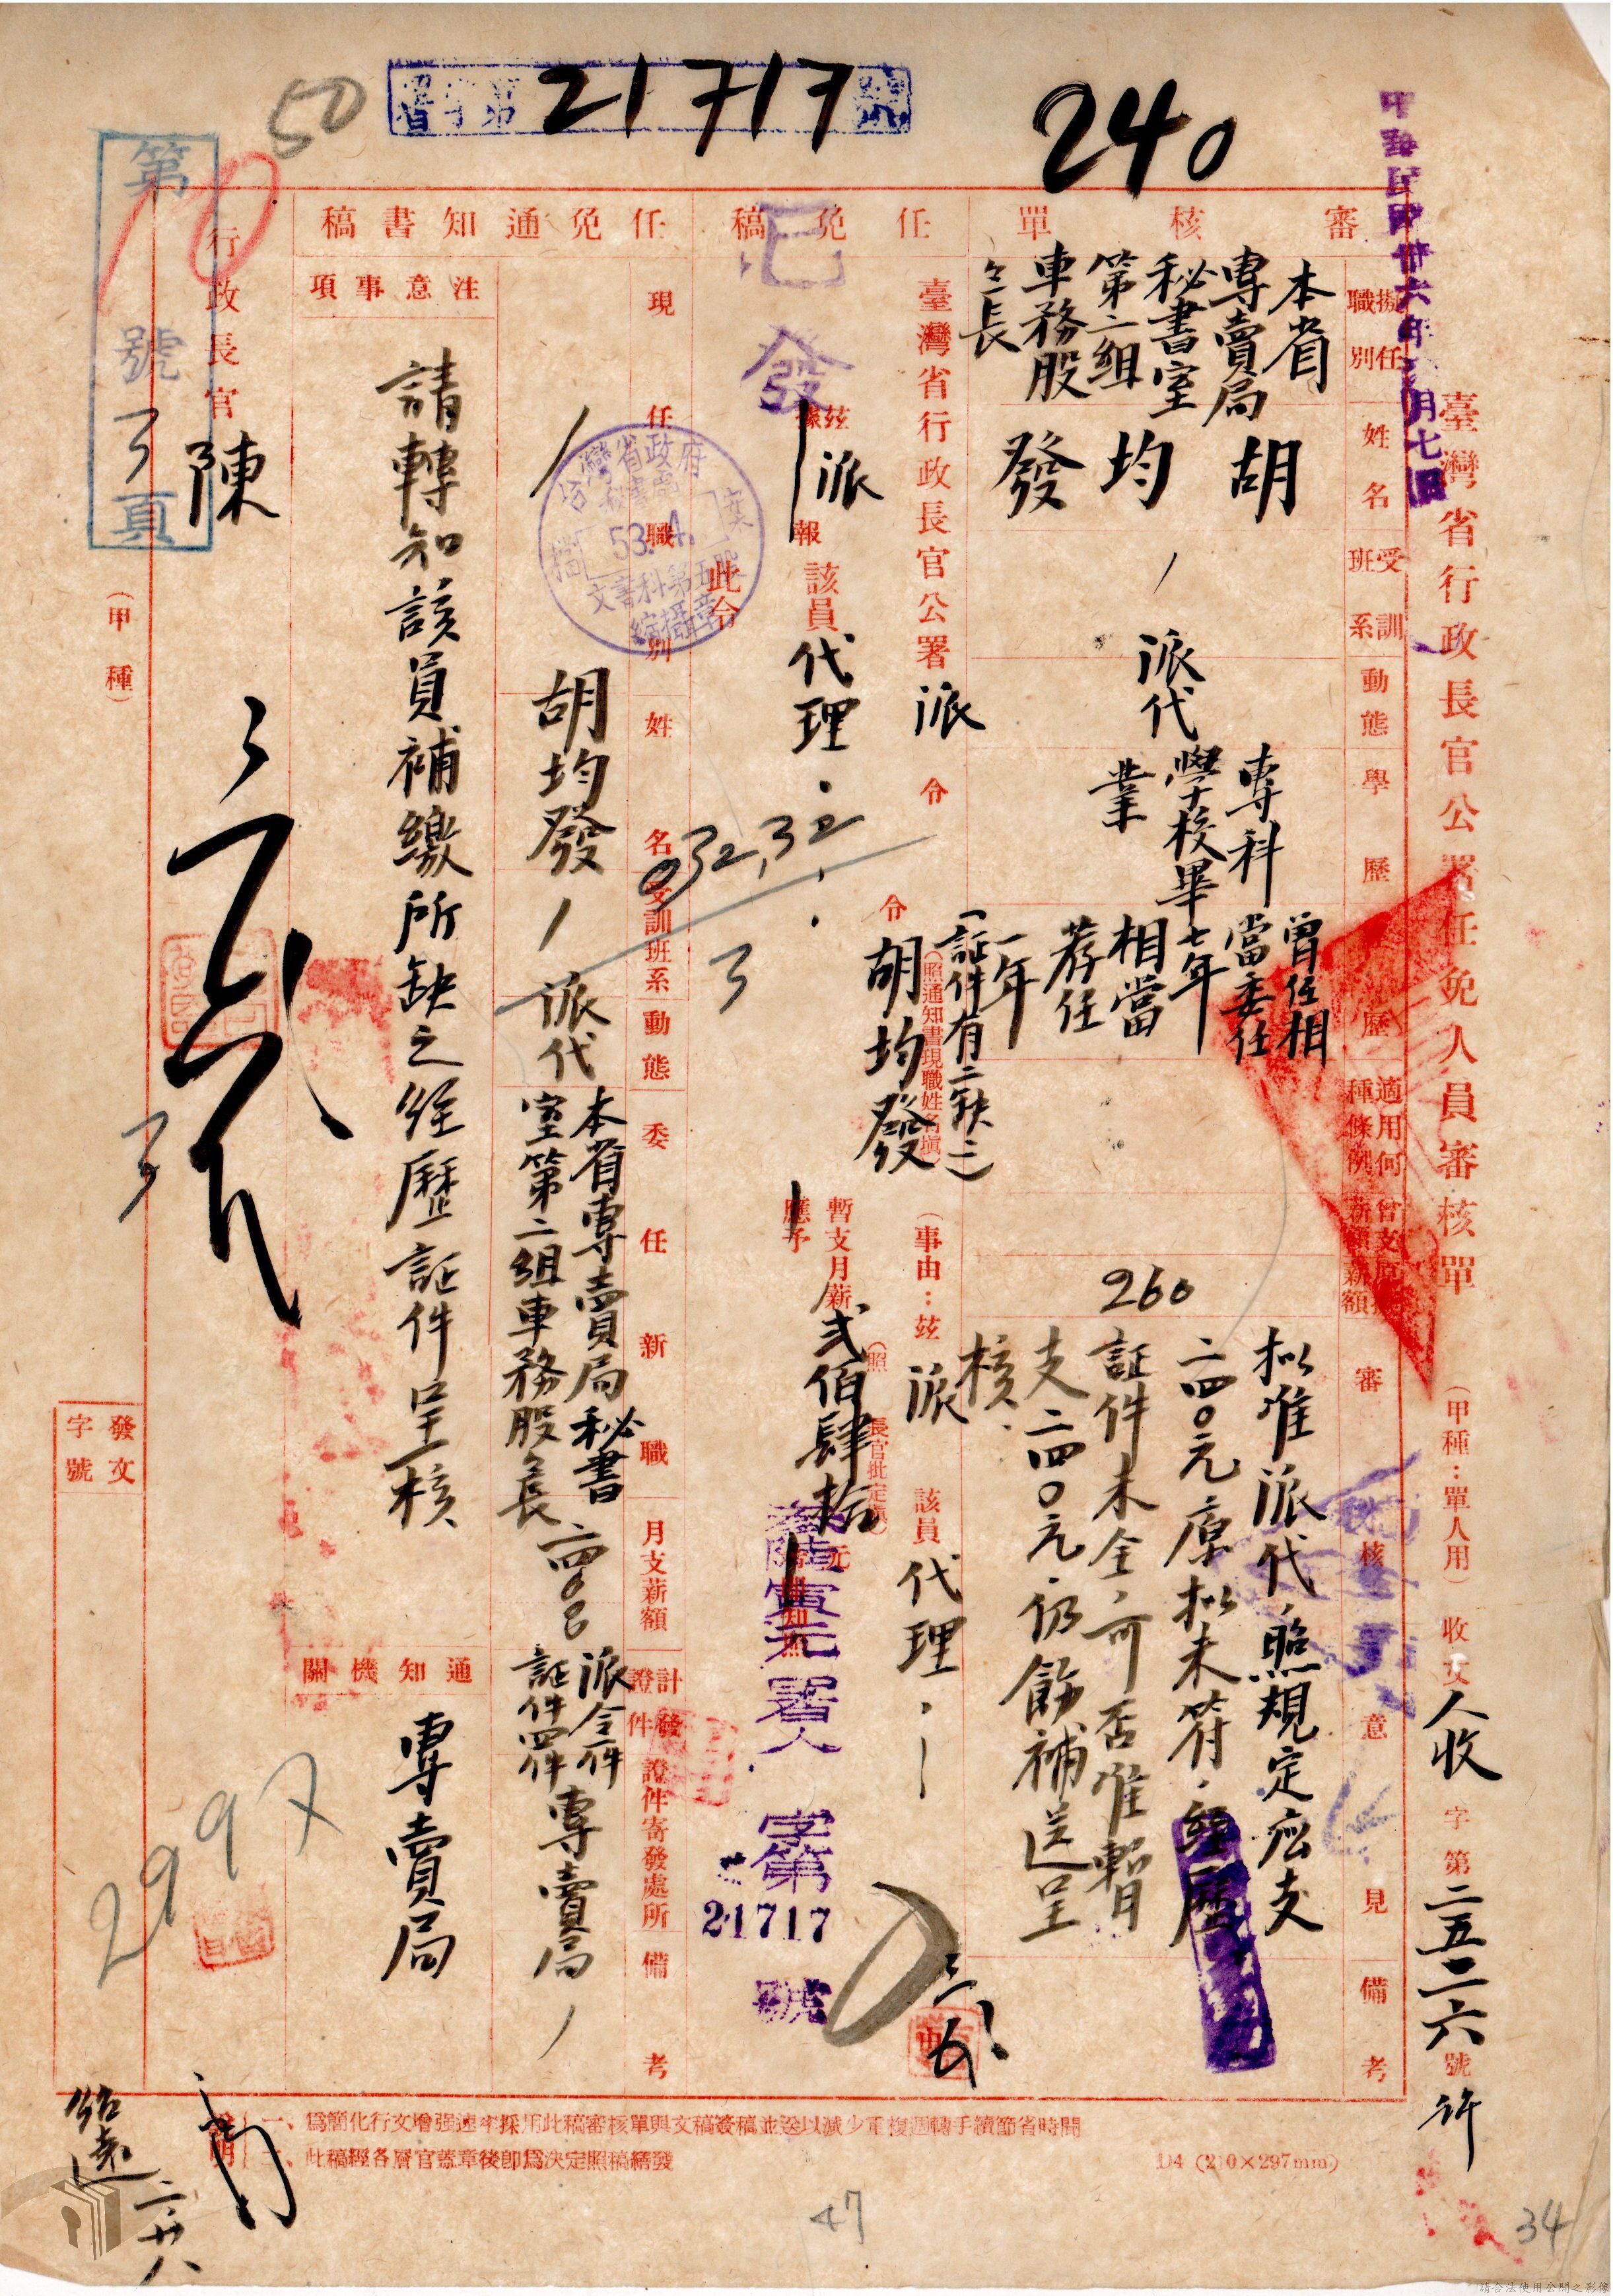 50
省字第21717號
240
中華民國卅六年 月七日
臺灣省行政長官公署任免人員審核單
(甲種：單人用)
收文人收字第二五二六號
許
審核單
擬任職別
本省專賣局秘書室第二組車務股股長
姓名
胡均發
受訓班系
動態
派代
學歷
專科學校畢業
經歷
曾任相當委任七年相當荐任一年
(証件有二缺二)
適用何種條例
曾支薪額
原擬薪額
260
審核意見
拟准派代，照規定應支
二四〇元原拟未符，經歷
証件未全，可否准暫
支二四〇元，仍飭補送呈
核
備考
任免稿
臺灣省行政長官公署派令
令胡均發
(照通知書現職姓名填)
(事由：茲派該員代理
茲派
據報
該員代理
暫支月薪貳佰肆拾元
(照長官批定填)
應予
此令
已發
署人字第21717號
032,32
任免通知書稿
現任職別
姓名
胡均發
受訓班系
動態
派代
委任新職
本省專賣局秘書
室第二組車務股股長
月支薪額
二四〇.〇〇
計發證件
派令一件
証件四件
證件寄發處所
專賣局
備考
注意事項
請轉知該員補繳所缺之經歷証件呈核
通知機關
專賣局
行政長官
陳
第 號 頁
10
(甲種)
發文
字號
2997
說明
一、爲簡化行文增强速率採用此稿審核單與文稿簽稿並送以減少重複週轉手續節省時間
二、此稿經各層官蓋章後即爲決定照稿繕發
D4 (210×297mm)
紹遠
二廿八
47
34
台灣省政府秘書處
53.4.
文書科第五股
縮攝章
請合法使用公開之影像